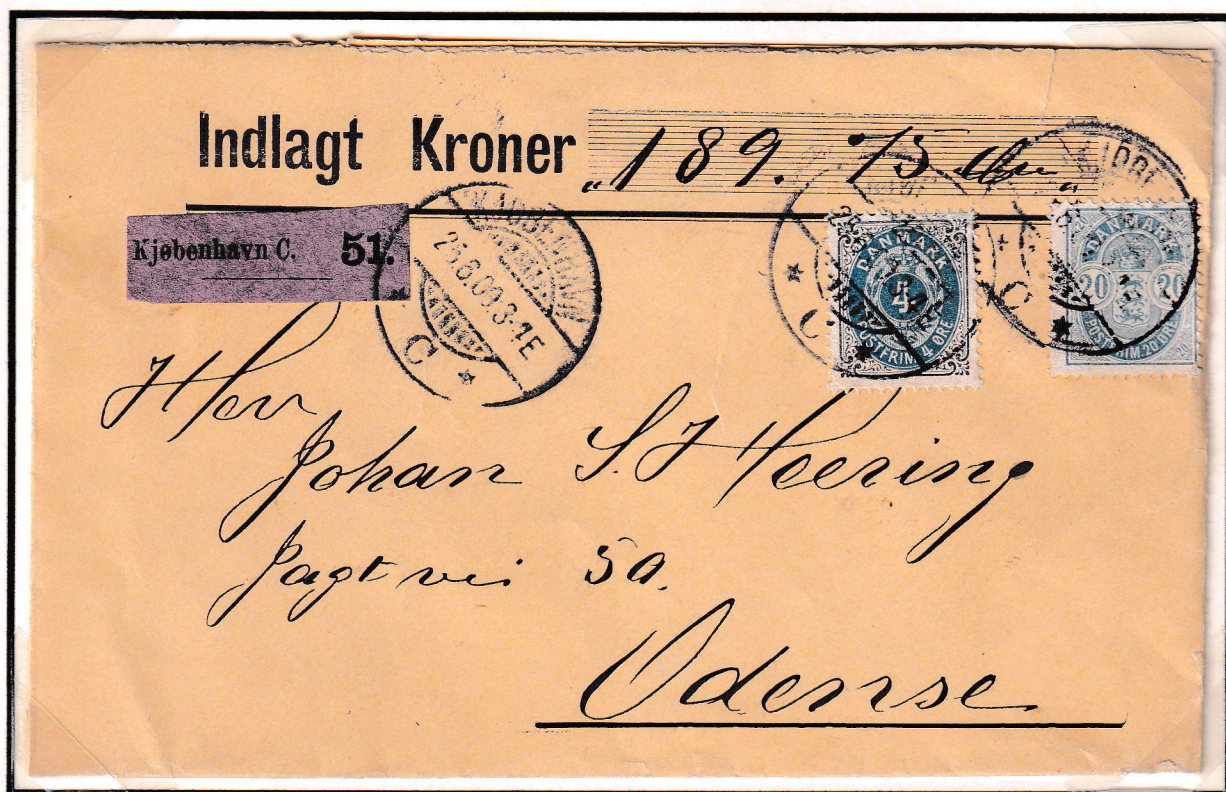 Indlagt Kroner "189. 75 Øre"
Kjøbenhavn C. 51.
KJØBENHAVN
25.6.00.3-4E
C
DANMARK
4
POSTFRIM. 4 ØRE
C
DANMARK
20 20
POSTFRIM: 20 ØRE
C
Herr
Johan S. H Heering
Jagtvei 50.
Odense